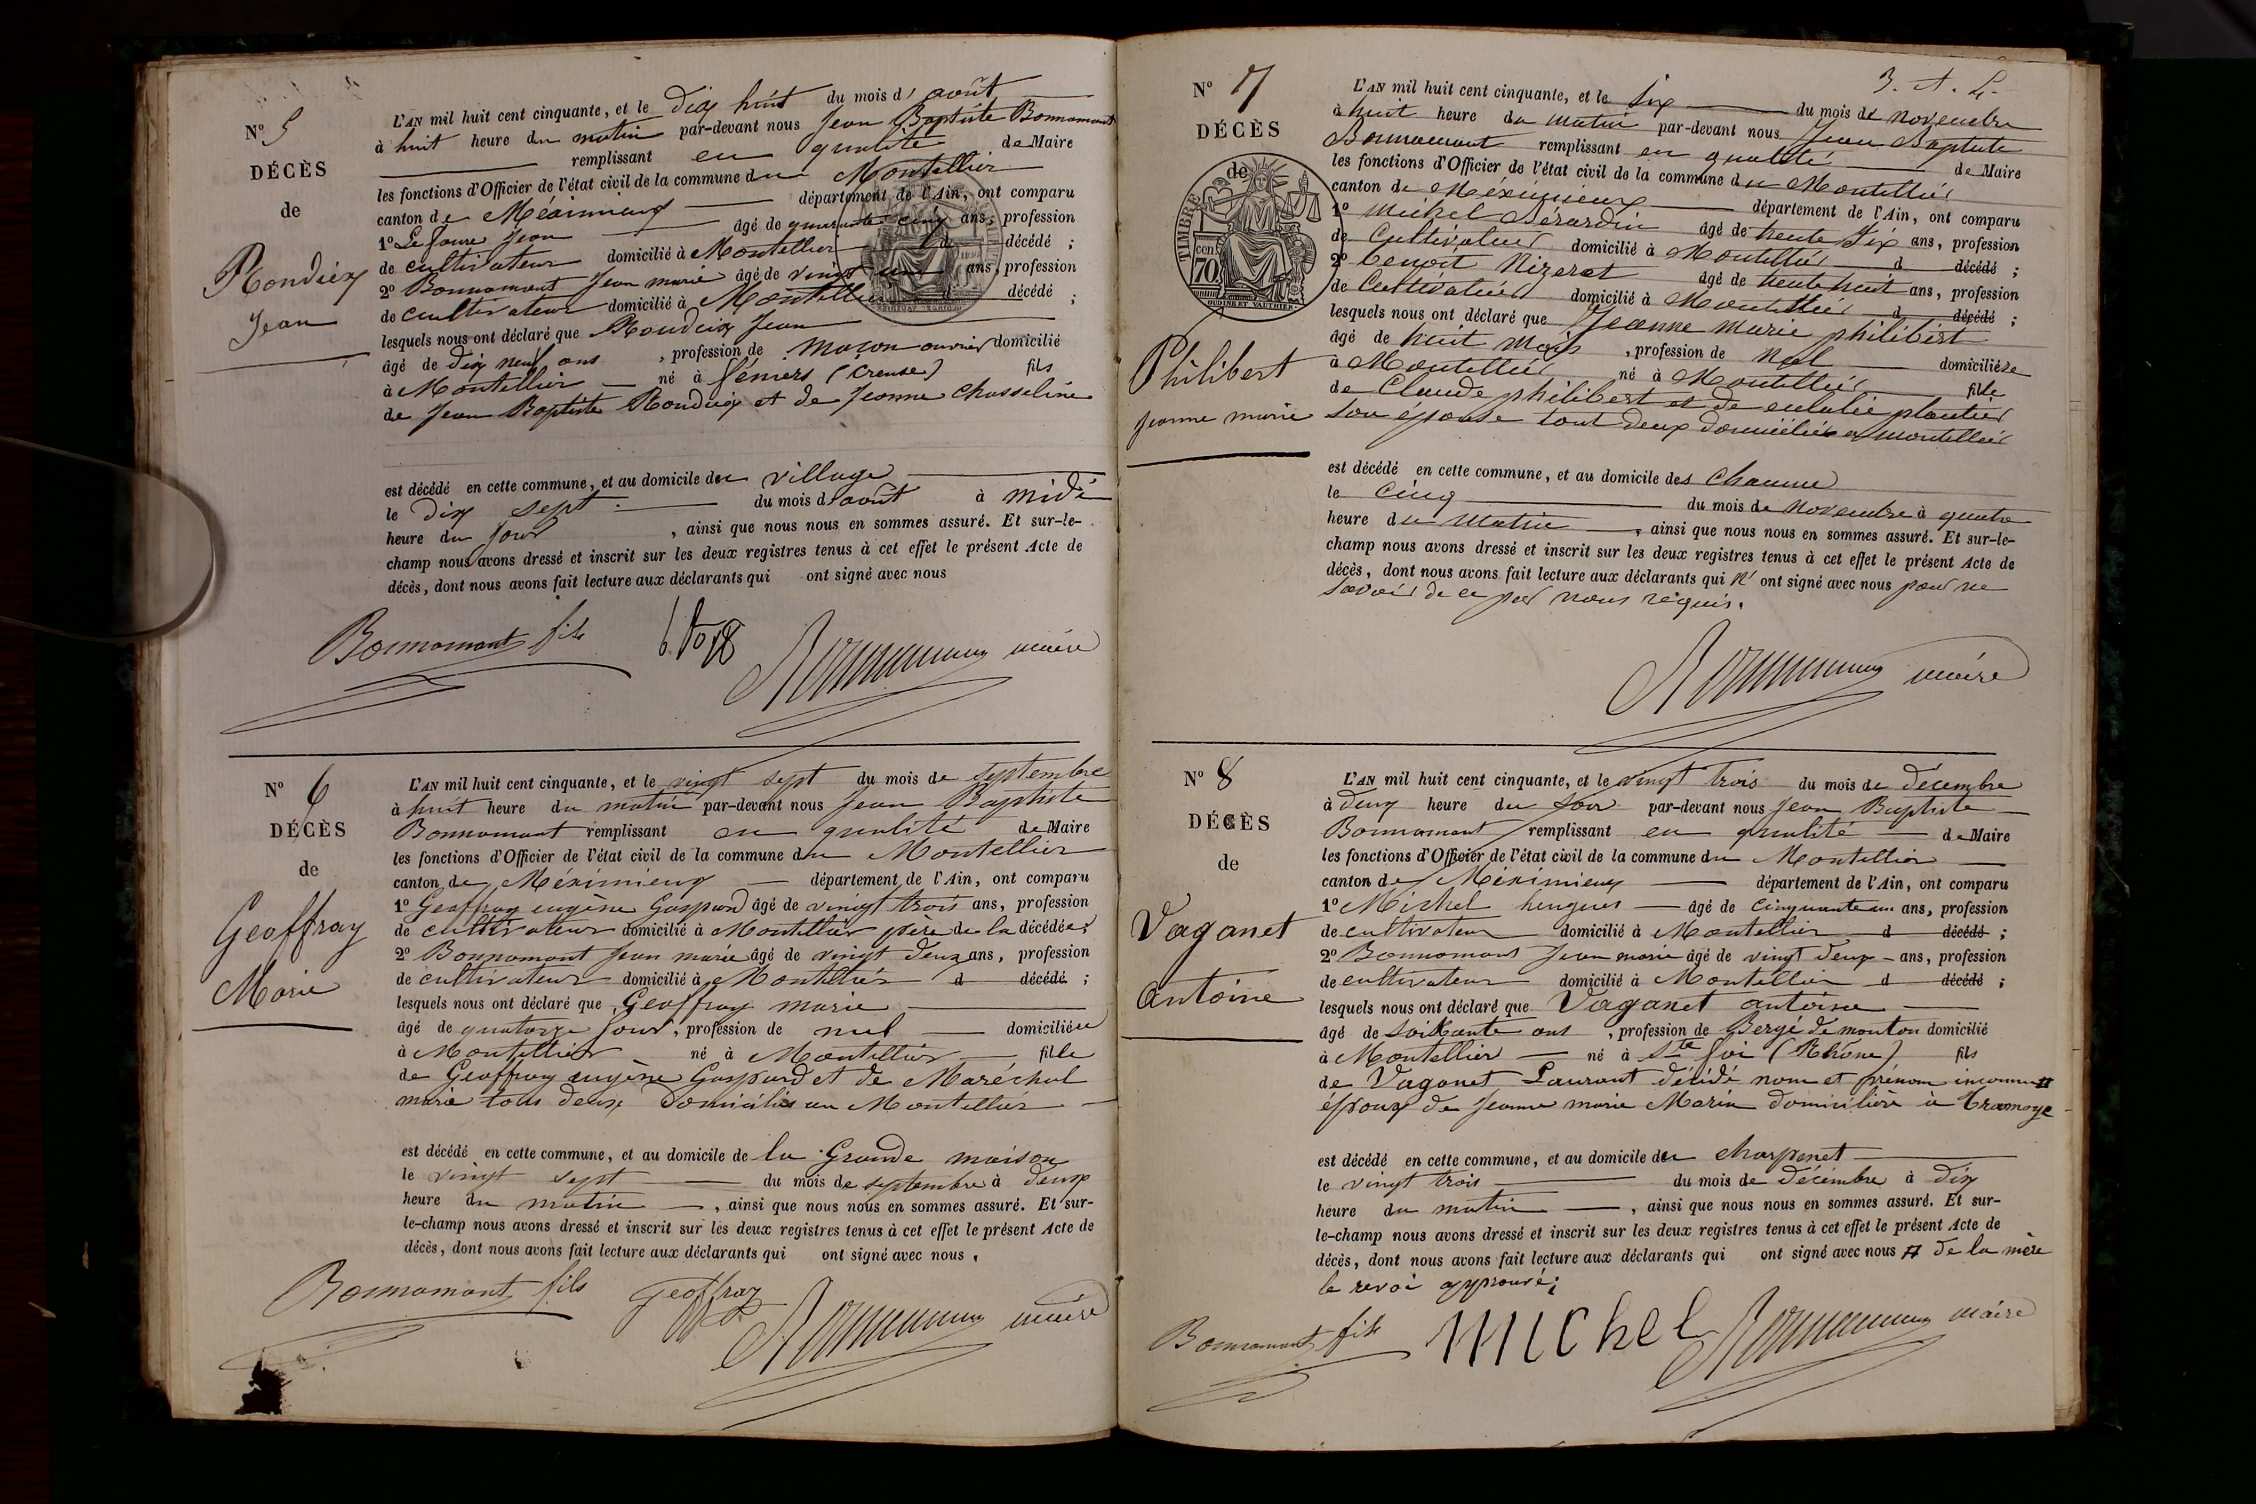 N° 5
DÉCÈS
de
Rondeix
Jean
L'AN mil huit cent cinquante, et le dix huit du mois d'août
à huit heure du matin par-devant nous Jean Baptiste Bonnamant
remplissant en qualité de Maire
les fonctions d'Officier de l'état civil de la commune du Montellier
canton de Méximieux département de l'Ain, ont comparu
1° Lefaure Jean âgé de quarante cinq ans, profession
de cultivateur domicilié à Montellier d décédé ;
2° Bonnamant Jean marie âgé de vingt un ans, profession
de cultivateur domicilié à Montellier d décédé ;
lesquels nous ont déclaré que Rondeix Jean
âgé de dix neuf ans, profession de maçon ouvrier domicilié
à Montellier né à féniers (Creuse) fils
de Jean Baptiste Rondeix et de Jeanne Chasseline
est décédé en cette commune, et au domicile du village
le dix sept du mois d'août à midi
heure du jour, ainsi que nous nous en sommes assuré. Et sur-le-
champ nous avons dressé et inscrit sur les deux registres tenus à cet effet le présent Acte de
décès, dont nous avons fait lecture aux déclarants qui ont signé avec nous
Bonnamant fils Bonnamant maire
N° 6
DÉCÈS
de
Geoffray
Marie
L'AN mil huit cent cinquante, et le vingt sept du mois de septembre
à huit heure du matin par-devant nous Jean Baptiste
Bonnamant remplissant en qualité de Maire
les fonctions d'Officier de l'état civil de la commune du Montellier
canton de Méximieux département de l'Ain, ont comparu
1° Geoffray eugène Gaspard âgé de vingt trois ans, profession
de cultivateur domicilié à Montellier père de la décédée ;
2° Bonnamant Jean marie âgé de vingt deux ans, profession
de cultivateur domicilié à Montellier d décédé ;
lesquels nous ont déclaré que Geoffray marie
âgé de quatorze jour, profession de nul domiciliée
à Montellier né à Montellier fille
de Geoffray eugène Gaspard et de Maréchal
marie tous deux domiciliés au Montellier
est décédé en cette commune, et au domicile de la Grande maison
le vingt sept du mois de septembre à deux
heure du matin, ainsi que nous nous en sommes assuré. Et sur-
le-champ nous avons dressé et inscrit sur les deux registres tenus à cet effet le présent Acte de
décès, dont nous avons fait lecture aux déclarants qui ont signé avec nous.
Bonnamant fils Geoffray Bonnamant maire
3. A. L.
N° 7
DÉCÈS
de
TIMBRE
70 cen
OUDINE ET VAUTHIER
Philibert
Jeanne marie
L'AN mil huit cent cinquante, et le six du mois de novembre
à huit heure du matin par-devant nous Jean Baptiste
Bonnamant remplissant en qualité de Maire
les fonctions d'Officier de l'état civil de la commune du Montellier
canton de Méximieux département de l'Ain, ont comparu
1° Michel Berardin âgé de trente six ans, profession
de Cultivateur domicilié à Montellier d décédé ;
2° benoit Nizerat âgé de trente huit ans, profession
de Cultivateur domicilié à Montellier d décédé ;
lesquels nous ont déclaré que Jeanne marie philibert
âgé de huit mois, profession de Nul domiciliée
à Montellier né à Montellier fille
de Claude philibert et de eulalie plantier
son épouse tout deux domiciliés à montellier
est décédé en cette commune, et au domicile des Chaume
le cinq du mois de Novembre à quatre
heure du matin, ainsi que nous nous en sommes assuré. Et sur-le-
champ nous avons dressé et inscrit sur les deux registres tenus à cet effet le présent Acte de
décès, dont nous avons fait lecture aux déclarants qui n' ont signé avec nous pour ne
savoir de ce par nous requis.
Bonnamant maire
N° 8
DÉCÈS
de
Vaganet
Antoine
L'AN mil huit cent cinquante, et le vingt trois du mois de décembre
à deux heure du soir par-devant nous Jean Baptiste
Bonnamant remplissant en qualité de Maire
les fonctions d'Officier de l'état civil de la commune du Montellier
canton de Méximieux département de l'Ain, ont comparu
1° Michel hugues âgé de cinquante un ans, profession
de cultivateur domicilié à Montellier d décédé ;
2° Bonnamant Jean marie âgé de vingt deux ans, profession
de cultivateur domicilié à Montellier d décédé ;
lesquels nous ont déclaré que Vaganet antoine
âgé de soixante ans, profession de Bergé de mouton domicilié
à Montellier né à Ste foi (Rhône) fils
de Vaganet Laurant décidé nom et prénom inconnu #
époux de Jeanne marie Marin domicilière à tramoye
est décédé en cette commune, et au domicile du charpenet
le vingt trois du mois de Décembre à dix
heure du matin, ainsi que nous nous en sommes assuré. Et sur-
le-champ nous avons dressé et inscrit sur les deux registres tenus à cet effet le présent Acte de
décès, dont nous avons fait lecture aux déclarants qui ont signé avec nous # de la mère
le revoi approuvé ;
Bonnamant fils Michel Bonnamant maire